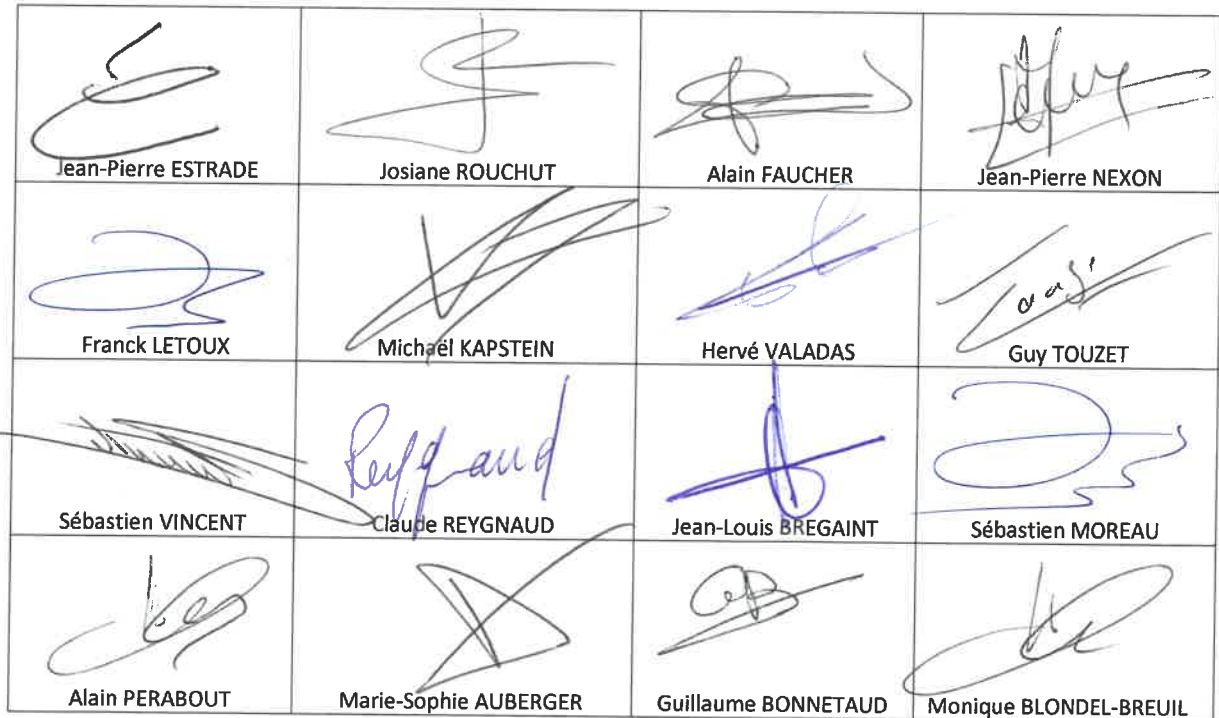 Jean-Pierre ESTRADE
Josiane ROUCHUT
Alain FAUCHER
Jean-Pierre NEXON
Franck LETOUX
Michaël KAPSTEIN
Hervé VALADAS
Guy TOUZET
Reygnaud
Sébastien VINCENT
Claude REYGNAUD
Jean-Louis BREGAINT
Sébastien MOREAU
Alain PERABOUT
Marie-Sophie AUBERGER
Guillaume BONNETAUD
Monique BLONDEL-BREUIL